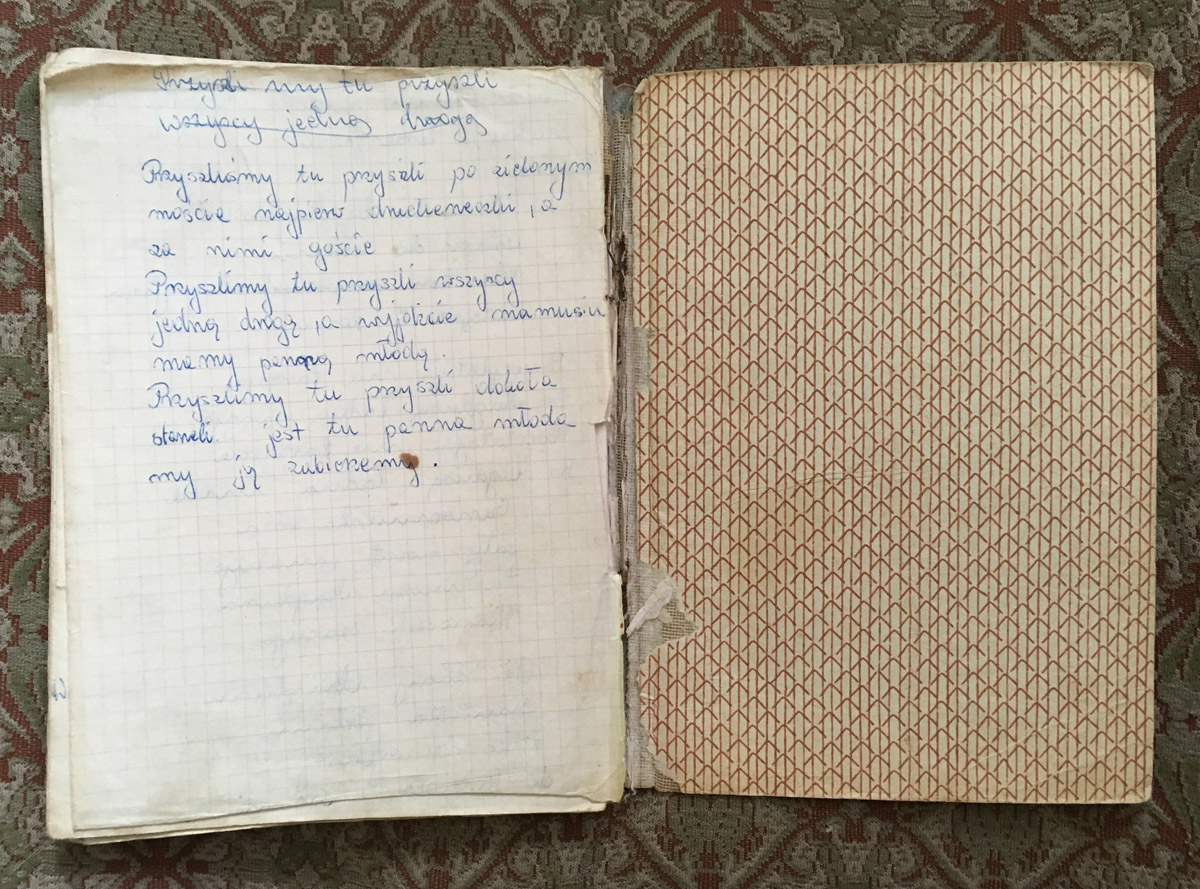 Przyszli my tu przyszli
wszyscy jedną drogą
Przyszliśmy tu przyszli po zielonym
moście najpierw drucheneczki, a
za nimi goście
Przyszlimy tu przyszli wszyscy
jedną drogą, a wyjdzcie mamusiu
mamy panną młodą.
Przyszlimy tu przyszli dokoła
staneli jest tu panna młoda
my ją zabierzemy.